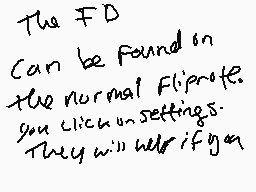 The FD
can be found on
the normal Fliprote.
you click on settings.
They will help if you